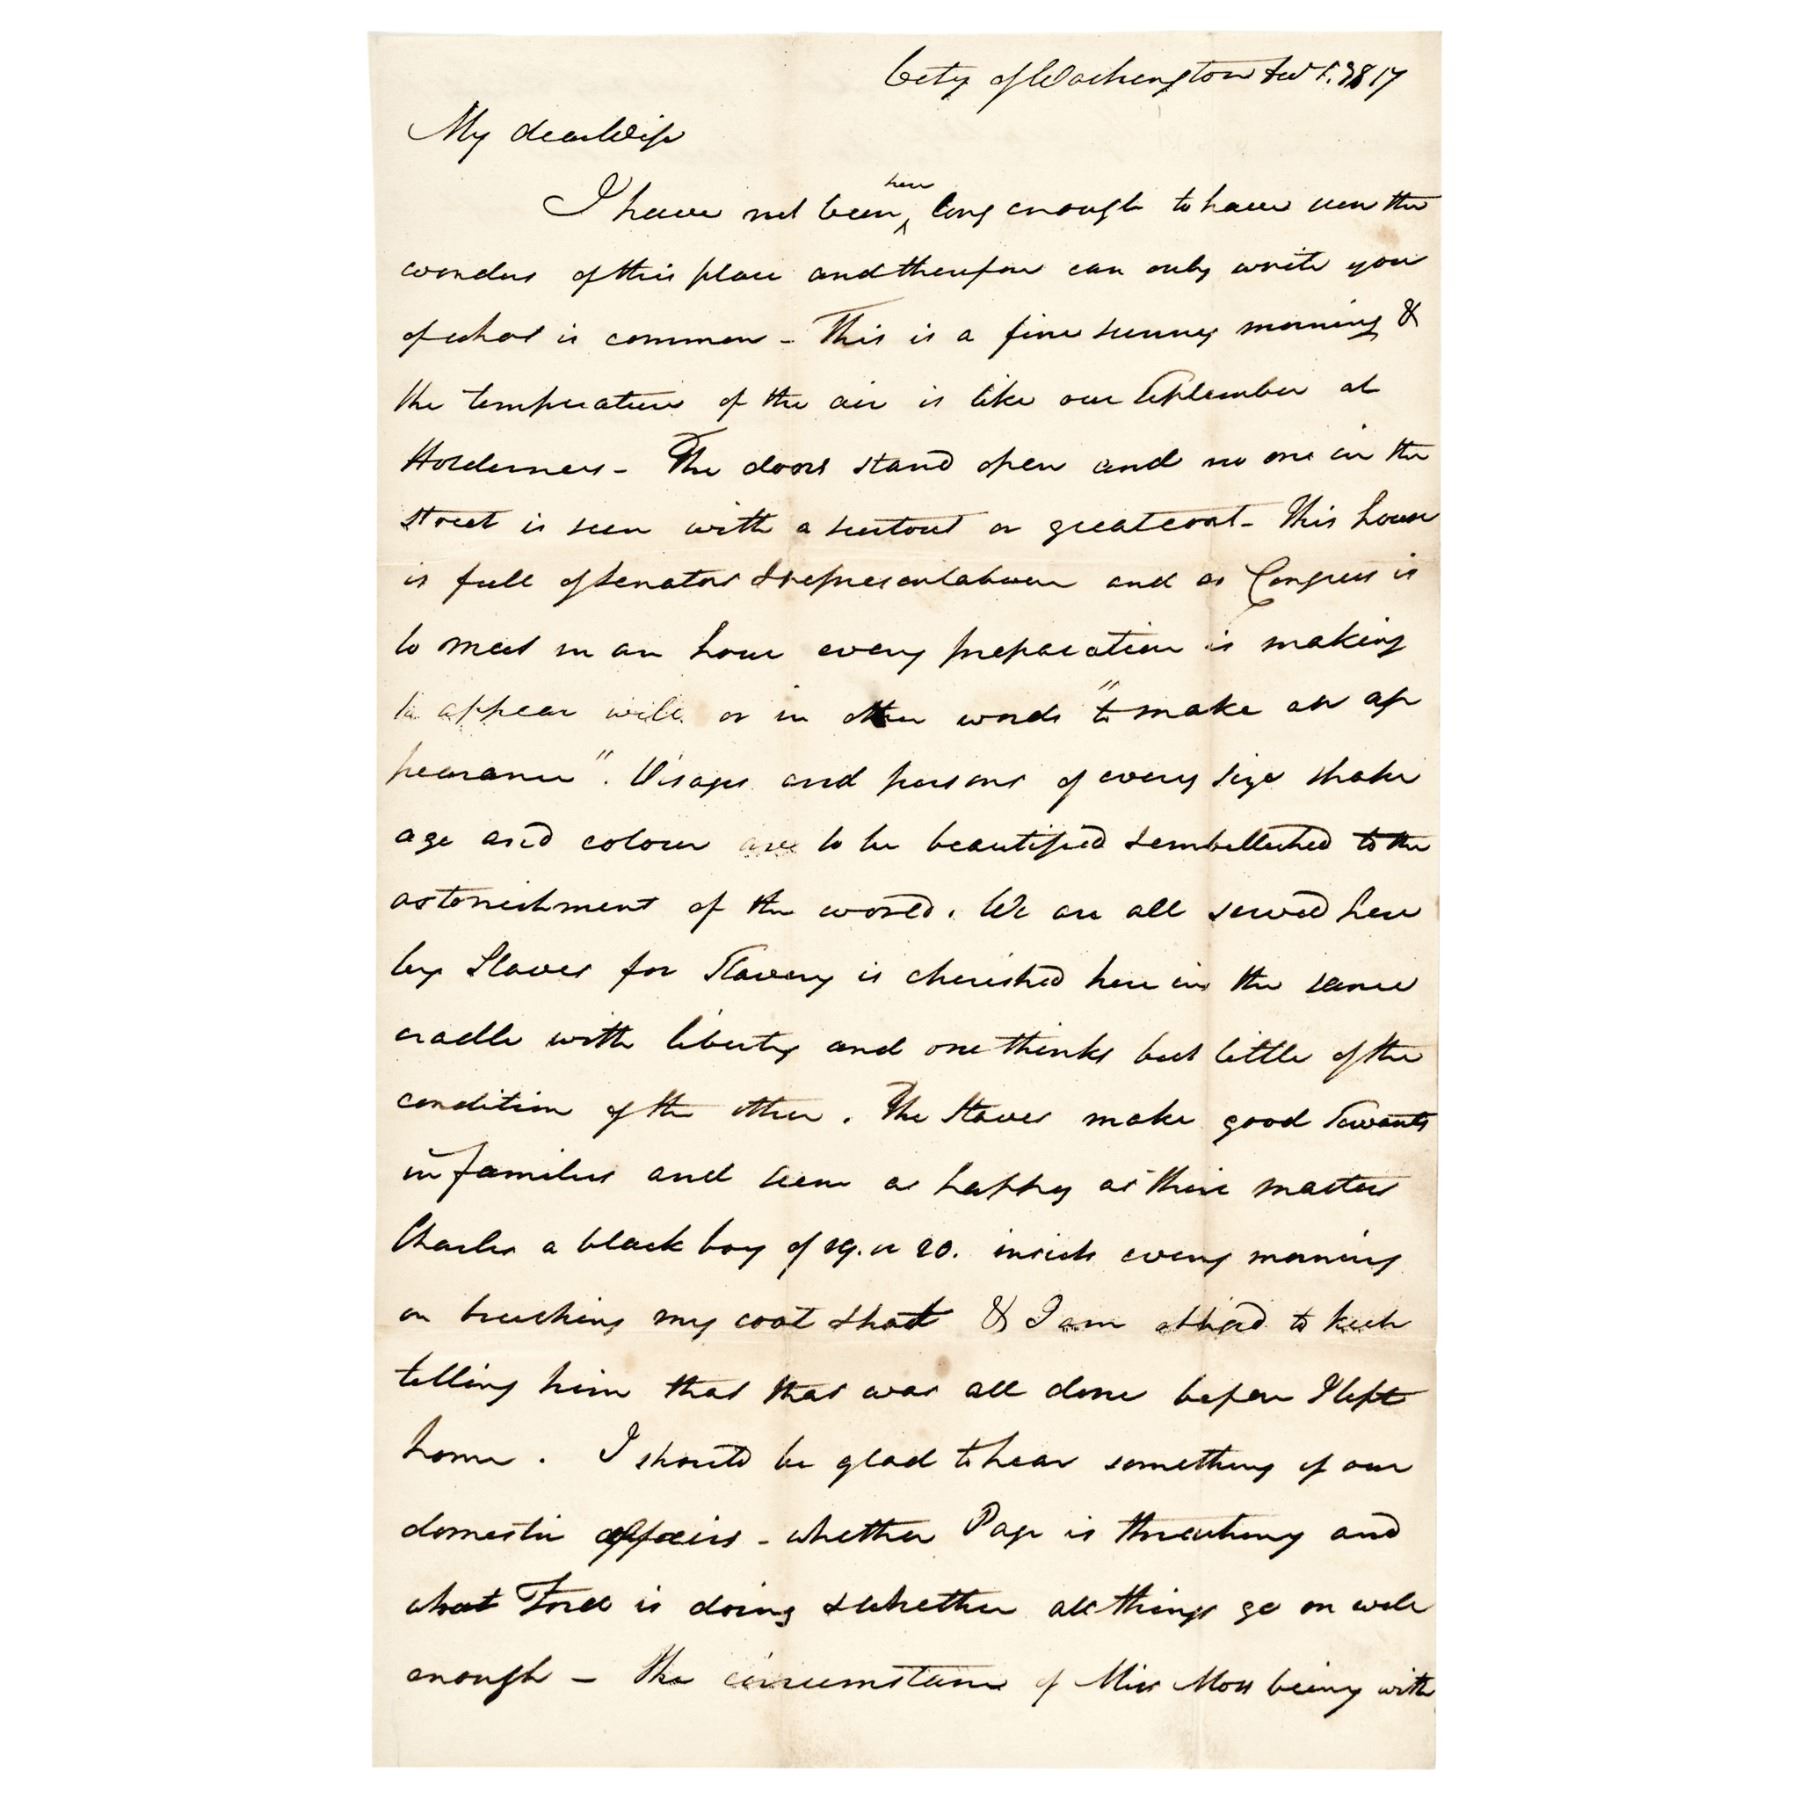 City of Washington Dec 1. 1817
My dear Wife
I have not been here long enough to have seen the
wonders of this place and therefore can only write you
of what is common - This is a fine sunny morning &
the temperature of the air is like our September at
Holderness - The doors stand open and no one in the
street is seen with a surtout or greatcoat - This house
is full of senators & representatives and as Congress is
to meet in an hour every preparation is making
to appear well or in other words "to make an ap
pearance". Visages and persons of every size shake
age and colour are to be beautified & embellished to the
astonishment of the world. We are all served here
by Slaves for Slavery is cherished here in the same
cradle with liberty and one thinks but little of the
condition of the other. The Slaves make good Servants
in families and seem as happy as their masters
Charles a black boy of 19. or 20. insists every morning
on brushing my coat & hat & I am obliged to keep
telling him that that was all done before I left
home. I should be glad to hear something of our
domestic affairs - whether Page is threatening and
what Ford is doing & whether all things go on well
enough - The circumstance of Miss Moss being with